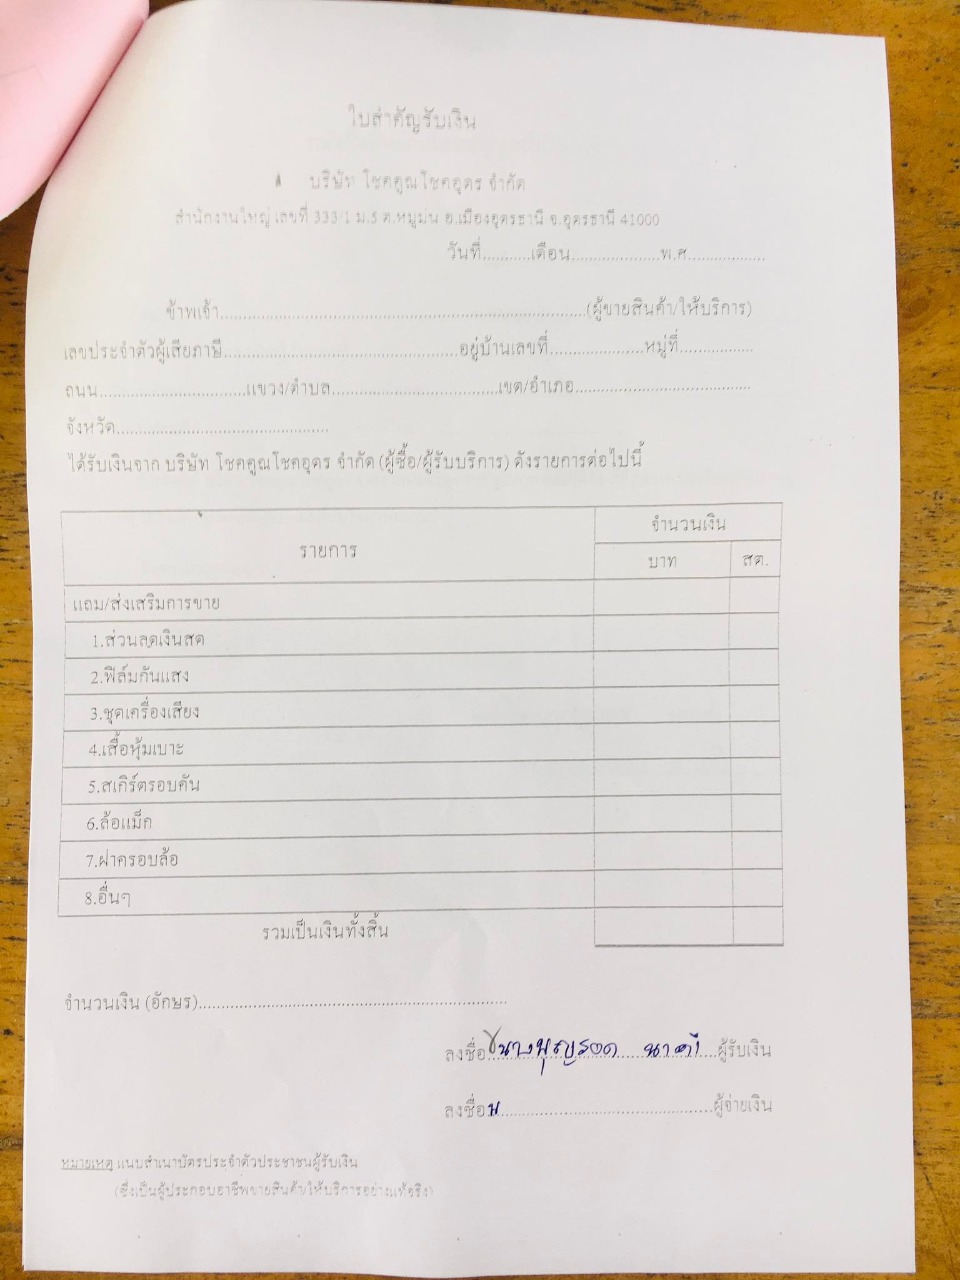 ใบสำคัญรับเงิน
บริษัท โชคคูณโชคอุดร จำกัด
สำนักงานใหญ่ เลขที่ 333/1 ม.5 ต.หมูม่น อ.เมืองอุดรธานี จ.อุดรธานี 41000
วันที่...........เดือน....................พ.ศ.................
ข้าพเจ้า................................................................................(ผู้ขายสินค้า/ให้บริการ)
เลขประจำตัวผู้เสียภาษี...................................................อยู่บ้านเลขที่.....................หมู่ที่................
ถนน................................แขวง/ตำบล....................................เขต/อำเภอ......................................
จังหวัด..............................................
ได้รับเงินจาก บริษัท โชคคูณโชคอุดร จำกัด (ผู้ซื้อ/ผู้รับบริการ) ดังรายการต่อไปนี้
รายการ จำนวนเงิน
บาท สต.
แถม/ส่งเสริมการขาย
1.ส่วนลดเงินสด
2.ฟิล์มกันแสง
3.ชุดเครื่องเสียง
4.เสื้อหุ้มเบาะ
5.สเกิร์ตรอบคัน
6.ล้อแม็ก
7.ฝาครอบล้อ
8.อื่นๆ
รวมเป็นเงินทั้งสิ้น
จำนวนเงิน (อักษร)...................................................................
ลงชื่อ นางบุญรอด นาคำ ผู้รับเงิน
ลงชื่อ................................................ผู้จ่ายเงิน
หมายเหตุ แนบสำเนาบัตรประจำตัวประชาชนผู้รับเงิน
(ซึ่งเป็นผู้ประกอบอาชีพขายสินค้า/ให้บริการอย่างแท้จริง)